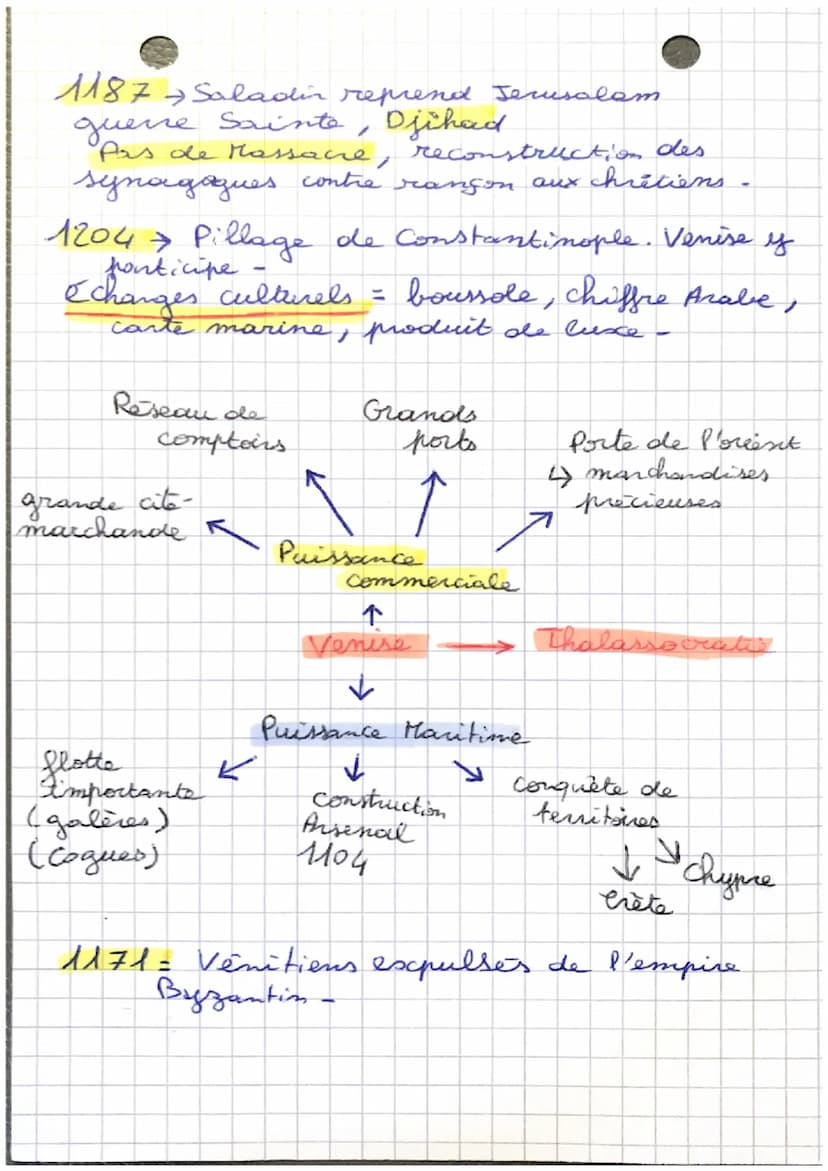 1187 → Saladin reprend Jerusalem
guerre Sainte, Djihad
Pas de Massacre, reconstruction des
synagogues contre rançon aux chrétiens -
1204 → Pillage de Constantinople. Venise y
participe -
Echanges culturels = boussole, chiffre Arabe,
carte marine, produit de luxe -
Réseau de
comptoirs
Grands
ports
Porte de l'orient
↳ marchandises
précieuses
grande cité-
marchande
Puissance
commerciale
Venise → Thalassocratie
Puissance Maritime
flotte
importante
(galères)
(cogues)
Construction
Arsenail
1104
Conquète de
territoires
Chypre
Crète
1171 = Vénitiens expulsés de l'empire
Byzantin -